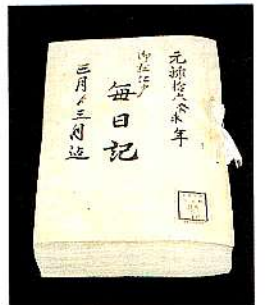 元禄拾六癸未年
御在江戸
毎日記
正月ゟ三月迄